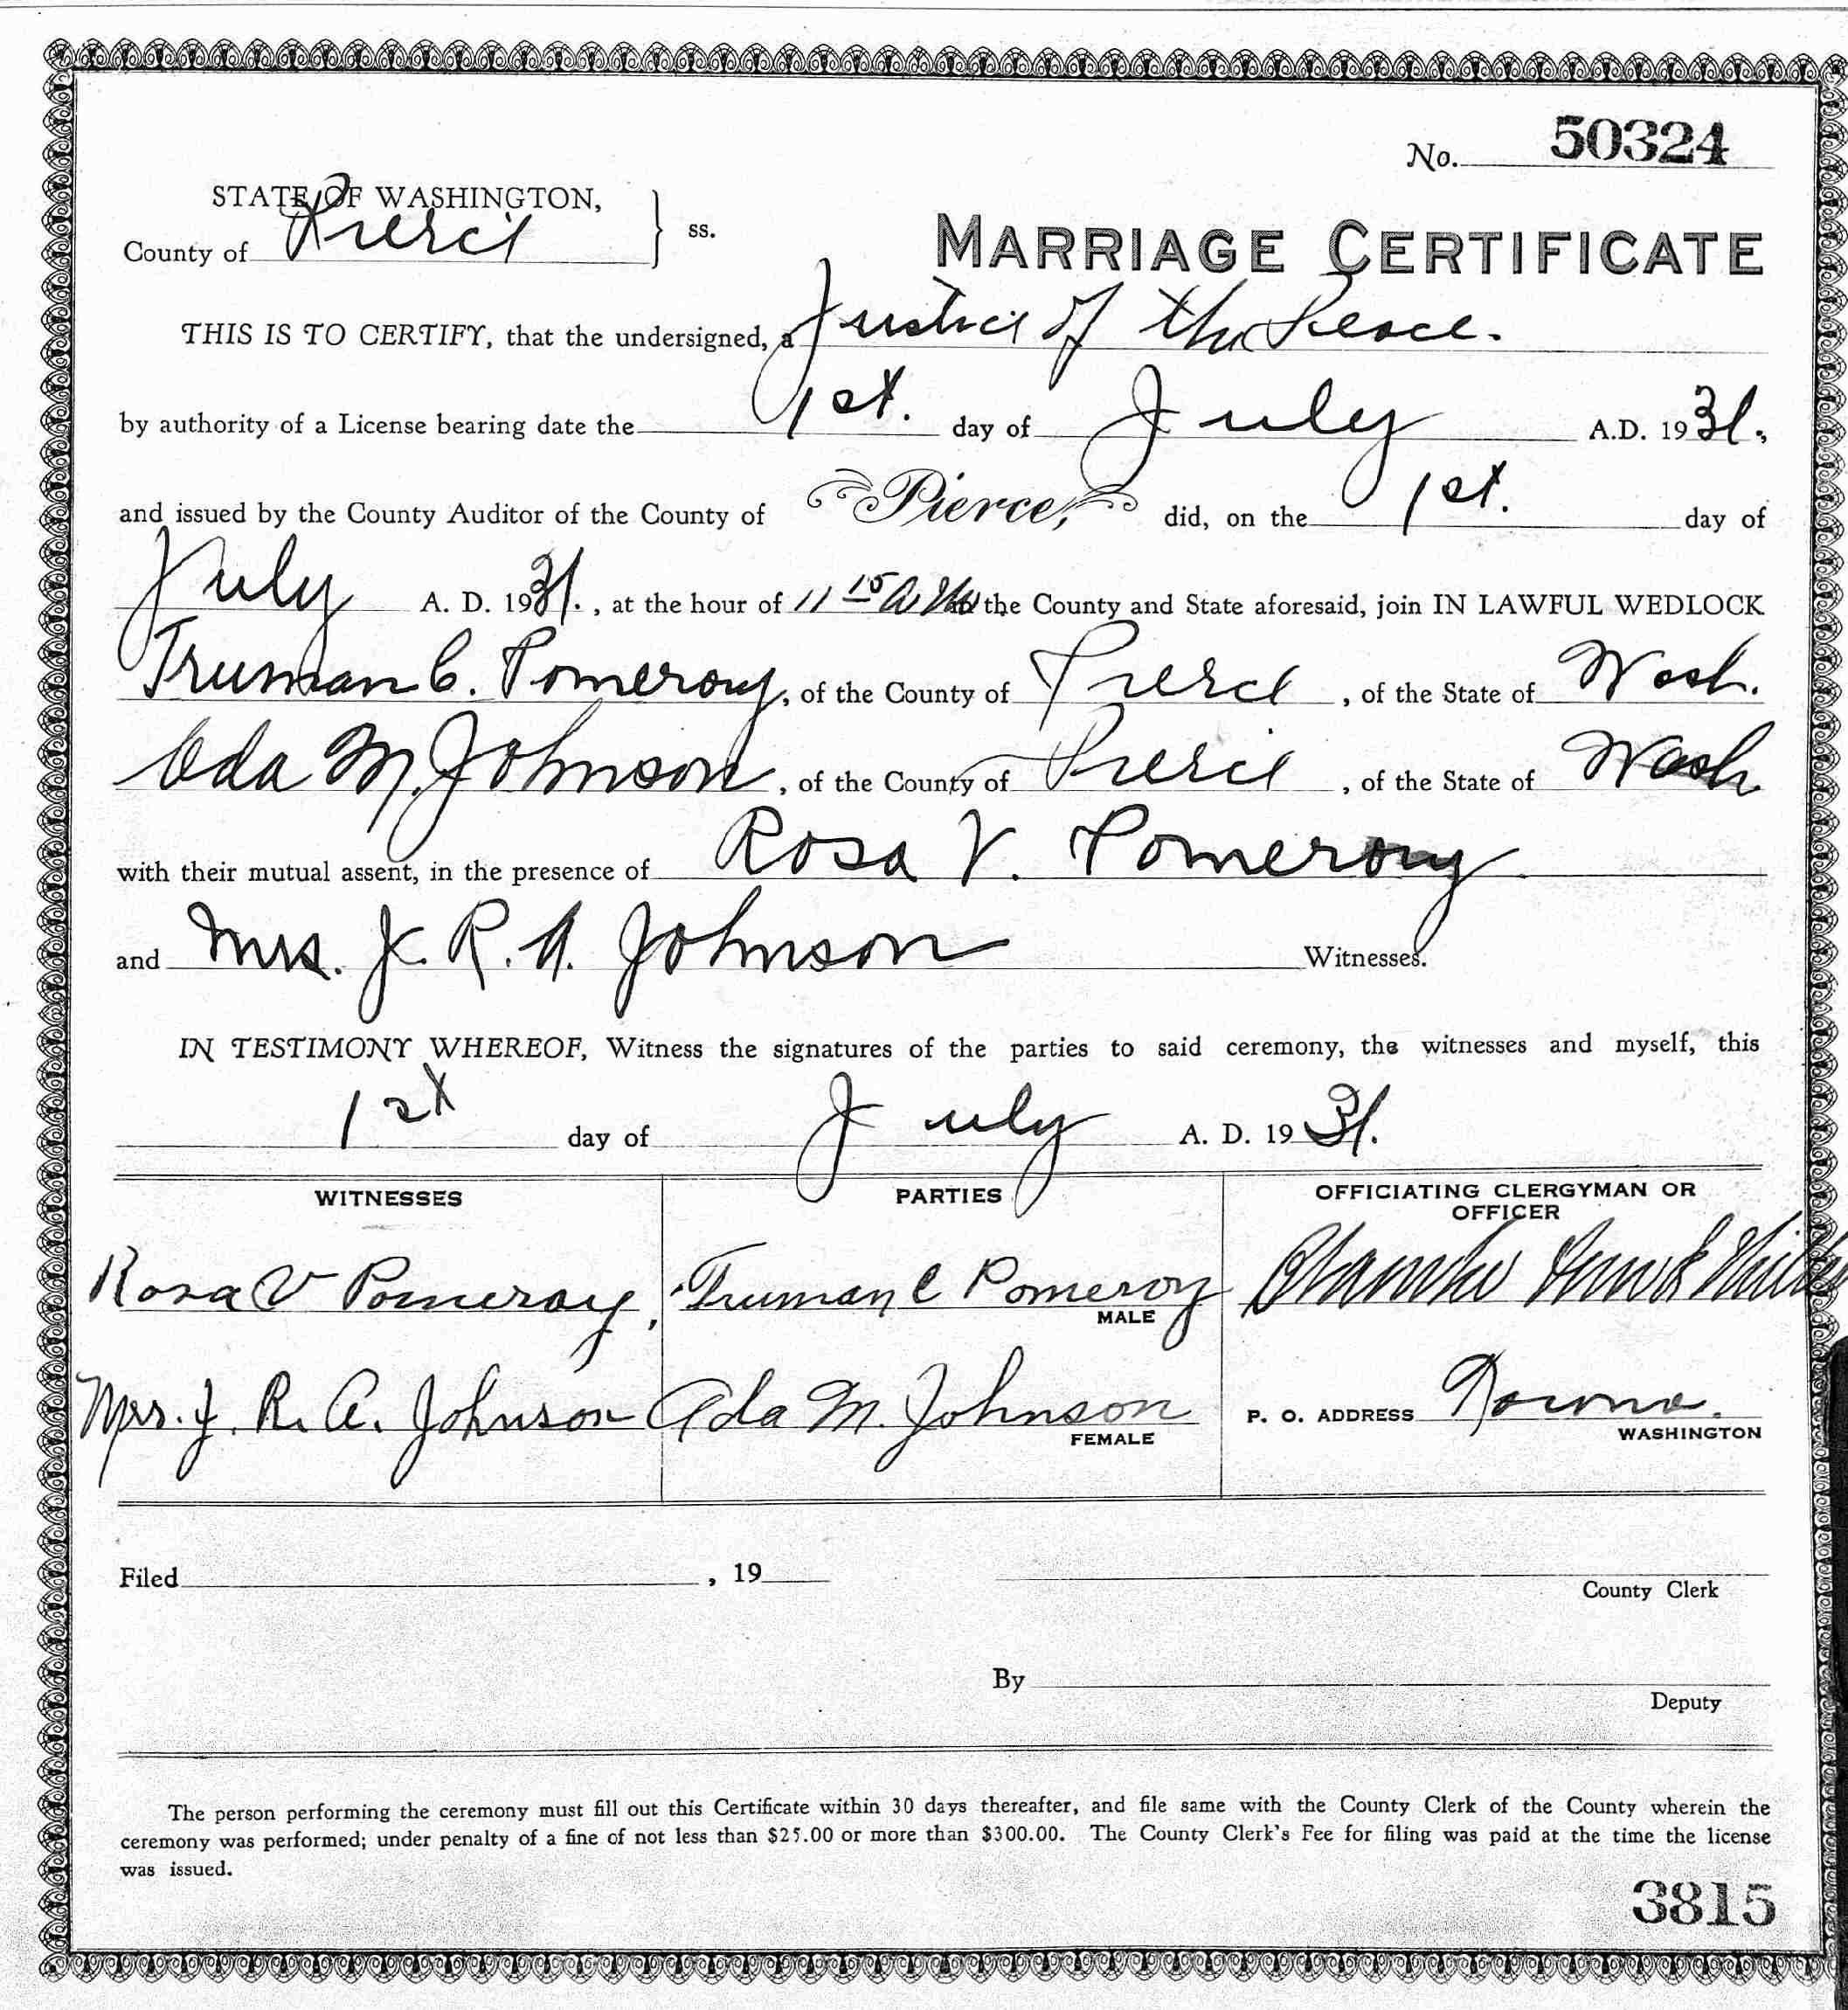 No. 50324
STATE OF WASHINGTON,
County of Pierce } ss.
MARRIAGE CERTIFICATE
THIS IS TO CERTIFY, that the undersigned, a Justice of the Peace.
by authority of a License bearing date the 1st. day of July A.D. 1931.,
and issued by the County Auditor of the County of Pierce, did, on the 1st. day of
July A. D. 1931. , at the hour of 11 15 A M the County and State aforesaid, join IN LAWFUL WEDLOCK
Truman C. Pomeroy, of the County of Pierce , of the State of Wash.
Ada M. Johnson , of the County of Pierce , of the State of Wash
with their mutual assent, in the presence of Rosa V. Pomeroy
and Mrs. J. R. A. Johnson Witnesses.
IN TESTIMONY WHEREOF, Witness the signatures of the parties to said ceremony, the witnesses and myself, this
1st day of July A. D. 1931.
WITNESSES PARTIES OFFICIATING CLERGYMAN OR
OFFICER
Rosa V Pomeroy, Truman C Pomeroy Blanche
MALE
Mrs. J. R. A. Johnson Ada M. Johnson P. O. ADDRESS Tacoma.
FEMALE WASHINGTON
Filed , 19
County Clerk
By
Deputy
The person performing the ceremony must fill out this Certificate within 30 days thereafter, and file same with the County Clerk of the County wherein the
ceremony was performed; under penalty of a fine of not less than $25.00 or more than $300.00. The County Clerk's Fee for filing was paid at the time the license
was issued.
3815